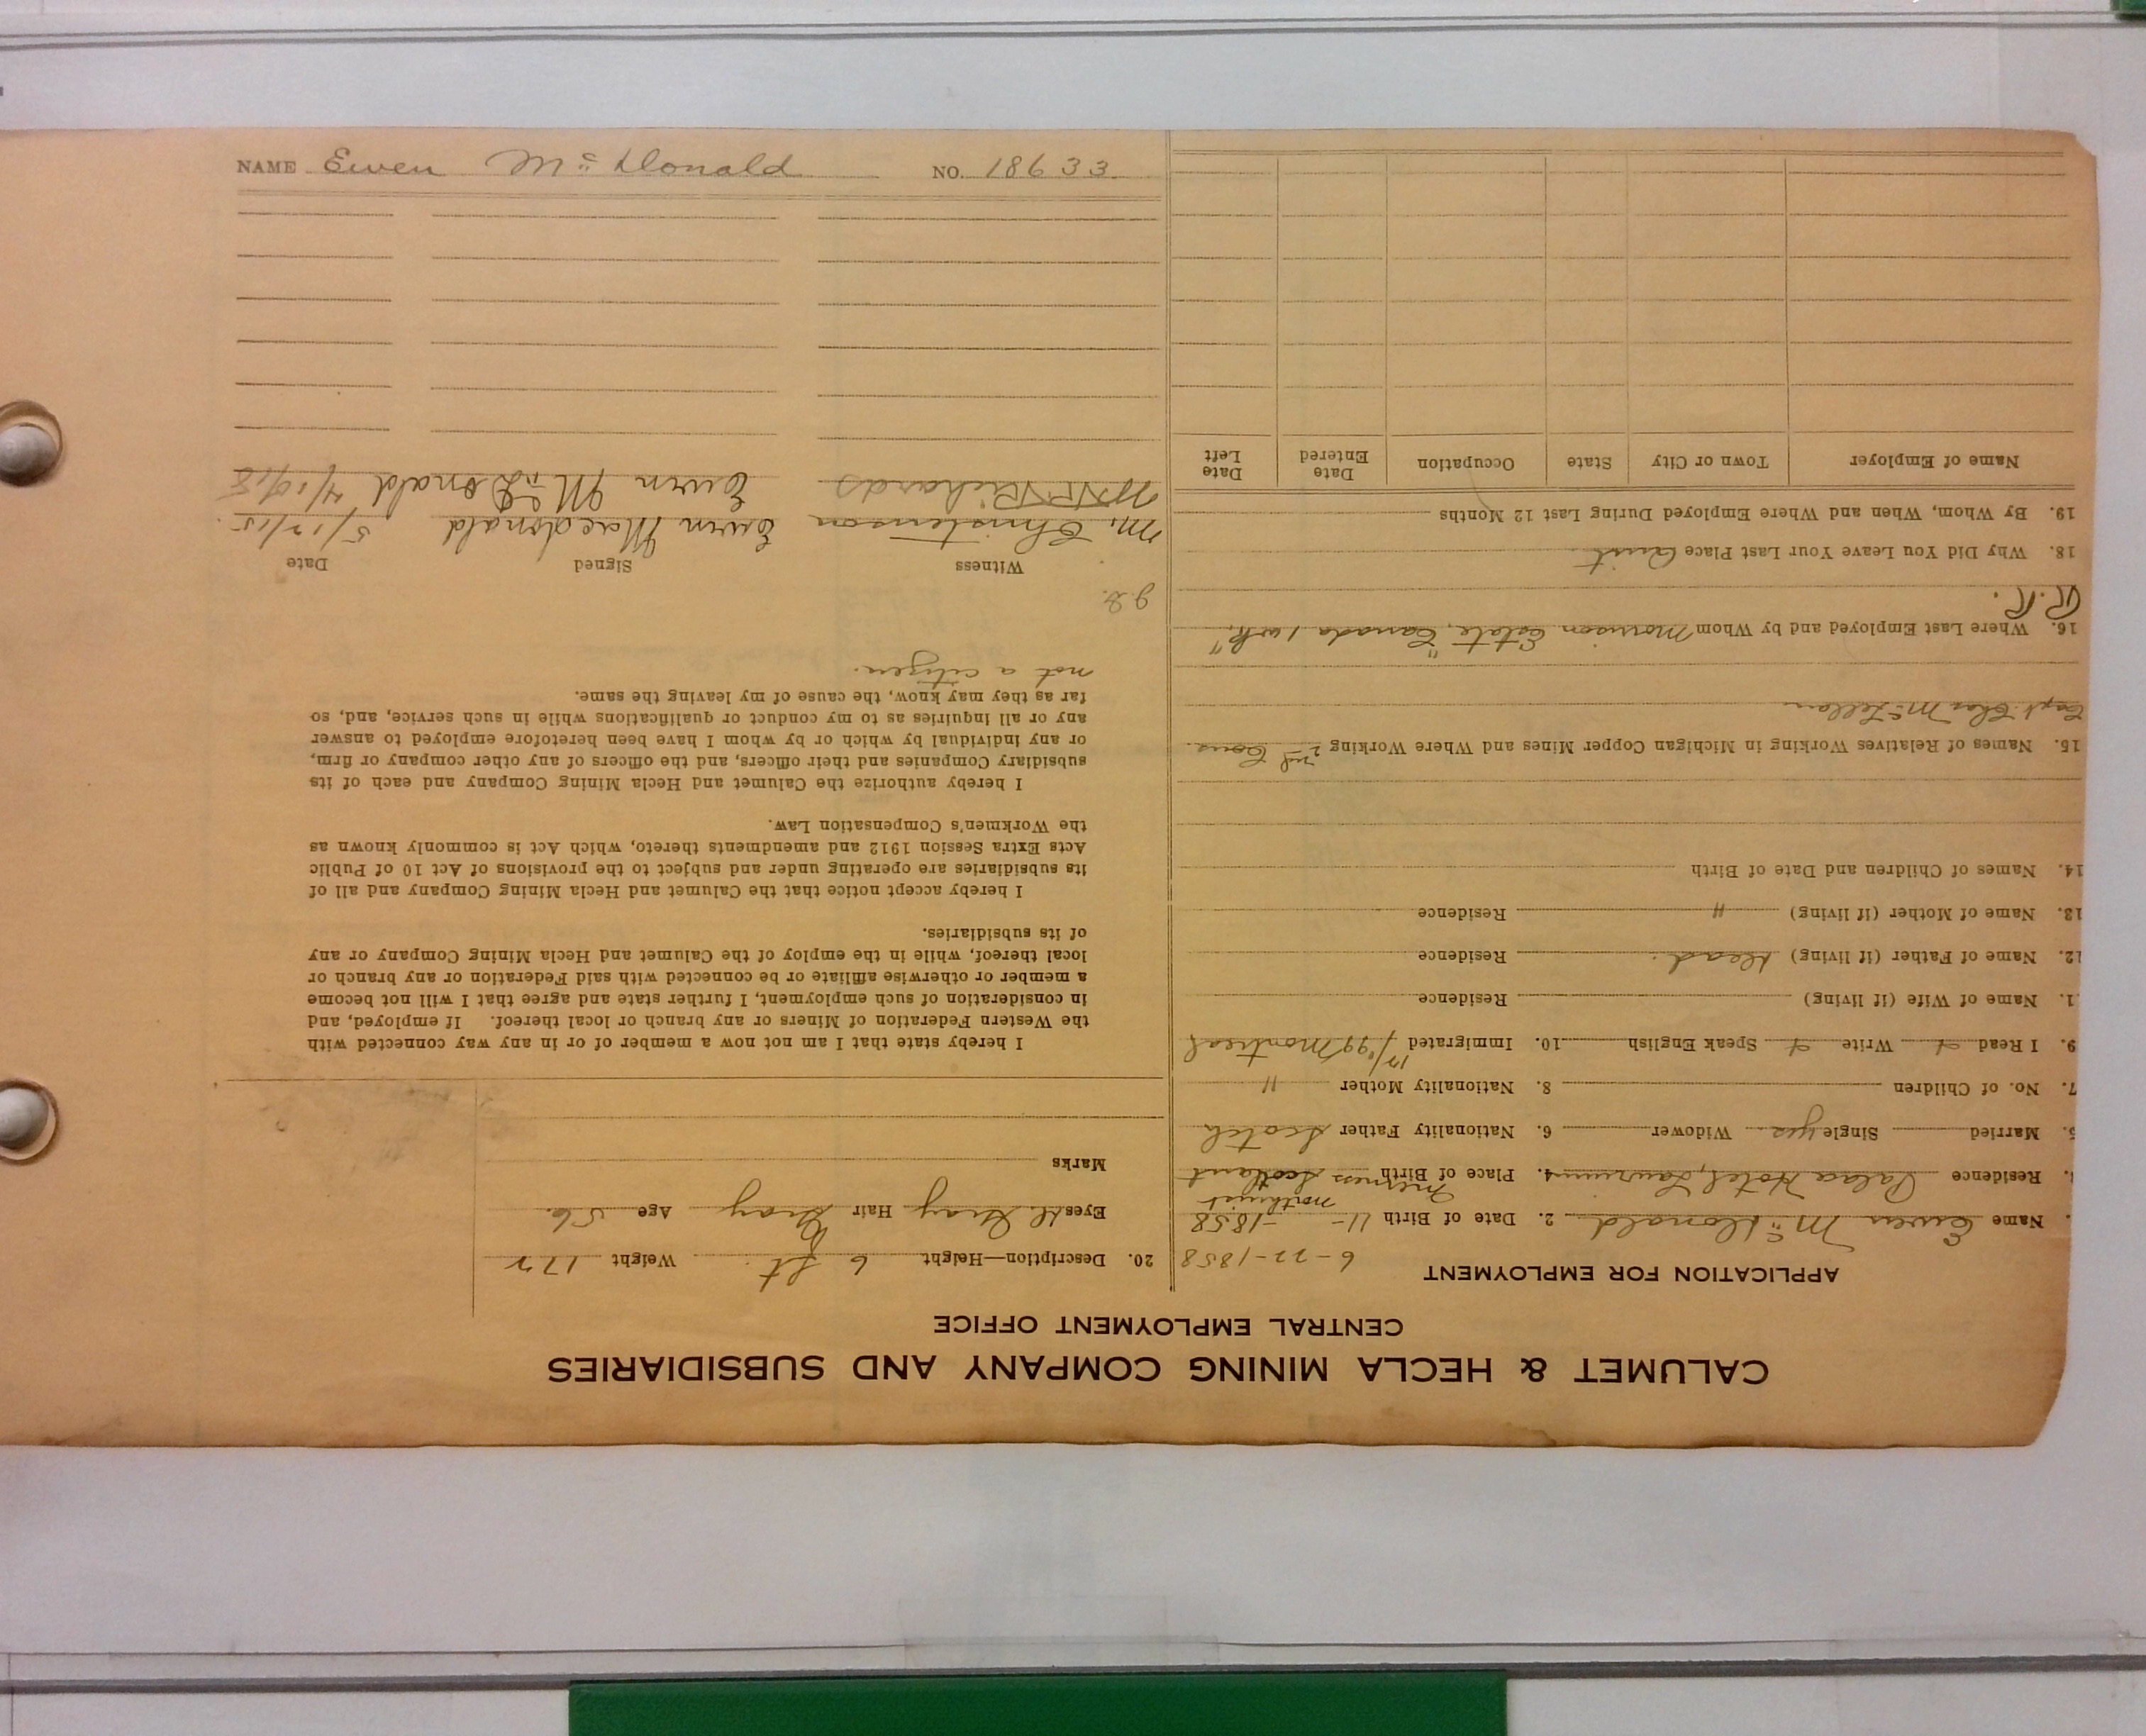 NAME Ewen McDonald NO. 18633
CALUMET & HECLA MINING COMPANY AND SUBSIDIARIES
CENTRAL EMPLOYMENT OFFICE
APPLICATION FOR EMPLOYMENT
6-22-1858
Name Ewen McDonald 2. Date of Birth 11- -1858
Residence Palace Hotel, Laurium 4. Place of Birth Inverness Scotland
5. Married Single yes. Widower 6. Nationality Father Scotch
7. No. of Children 8. Nationality Mother "
9. I Read Write Speak English 10. Immigrated Montreal
1. Name of Wife (if living) Residence
12. Name of Father (if living) dead. Residence
13. Name of Mother (if living) " Residence
14. Names of Children and Date of Birth
15. Names of Relatives Working in Michigan Copper Mines and Where Working 2nd Cous.
Capt. Chas McLellan
16. Where Last Employed and by Whom Morrison Estate, "Canada 1 wk."
R.R.
18. Why Did You Leave Your Last Place Quit
19. By Whom, When and Where Employed During Last 12 Months
Name of Employer Town or City State Occupation Date Entered Date Left
20. Description—Height 6 ft. Weight 172
Eyes Gray Hair Gray Age 56.
Marks
I hereby state that I am not now a member of or in any way connected with
the Western Federation of Miners or any branch or local thereof. If employed, and
in consideration of such employment, I further state and agree that I will not become
a member or otherwise affiliate or be connected with said Federation or any branch or
local thereof, while in the employ of the Calumet and Hecla Mining Company or any
of its subsidiaries.
I hereby accept notice that the Calumet and Hecla Mining Company and all of
its subsidiaries are operating under and subject to the provisions of Act 10 of Public
Acts Extra Session 1912 and amendments thereto, which Act is commonly known as
the Workmen's Compensation Law.
I hereby authorize the Calumet and Hecla Mining Company and each of its
subsidiary Companies and their officers, and the officers of any other company or firm,
or any individual by which or by whom I have been heretofore employed to answer
any or all inquiries as to my conduct or qualifications while in such service, and, so
far as they may know, the cause of my leaving the same.
not a citizen.
Witness Signed Date
M. Christenson Ewen Macdonald 5/12/15.
Richards Ewen McDonald 4/19/18